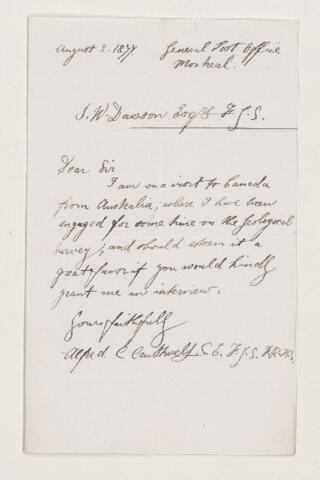 August 2. 1877. General Post Office
Montreal.
J. W. Dawson Esqre F.G.S.
Dear Sir
I am on a visit to Canada
from Australia; where I have been
engaged for some time on the Geological
Survey; and should esteem it a
great favor if you would kindly
grant me an interview.
Yours faithfully
Alfred C Cruttwell C.E. F.G.S.